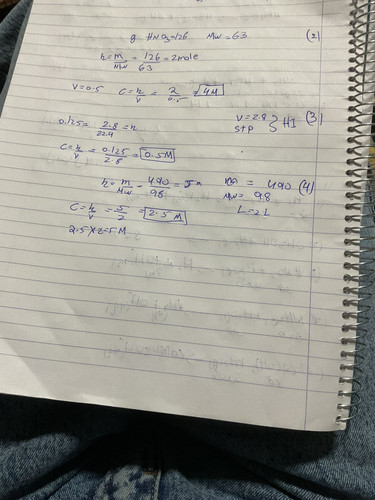 g HNO3=126 MW=63 (2)
n=m/MW=126/63=2mole
V=0.5 C=n/V=2/0.5=4M
0.125=2.8/22.4=n V=2.8 STP } HI (3)
C=n/V=0.125/2.8=0.5M
n=m/MW=490/98=5n m=490 (4)
MW=98
C=n/V=5/2=2.5M L=2L
2.5x2=5M